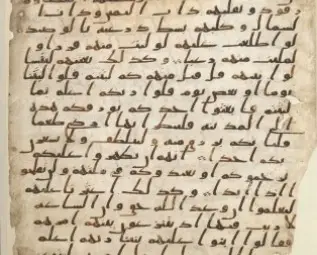 رقود ونقلبهم ذات اليمين وذات ا
لشمال وكلبهم بسط ذرعيه بالوصيد
لو اطلعت عليهم لوليت منهم فرارا و
لملئت منهم رعبا وكذلك بعثنهم ليتسا
لوا بينهم قل قيل منهم كم لبثتم قلوا لبثنا
يوما او بعض يوم قلوا ربكم اعلم بما
لبثتم فابعثوا احدكم بورقكم هذه
الى المدينه فلينظر ايها ازكى طعما
فلياتكم برزق منه وليتلطف ولا يشعرن
بكم احدا انهم ان يظهروا عليكم
يرجموكم او يعيدوكم في ملتهم ولن تفلحو
ا اذا ابدا وكذلك اعثرنا عليهم
ليعلموا ان وعد الله حق وان الساعه
لا ريب فيها اذ يتنزعون بينهم امرهم
فقالوا ابنوا عليهم بنينا ربهم اعلم